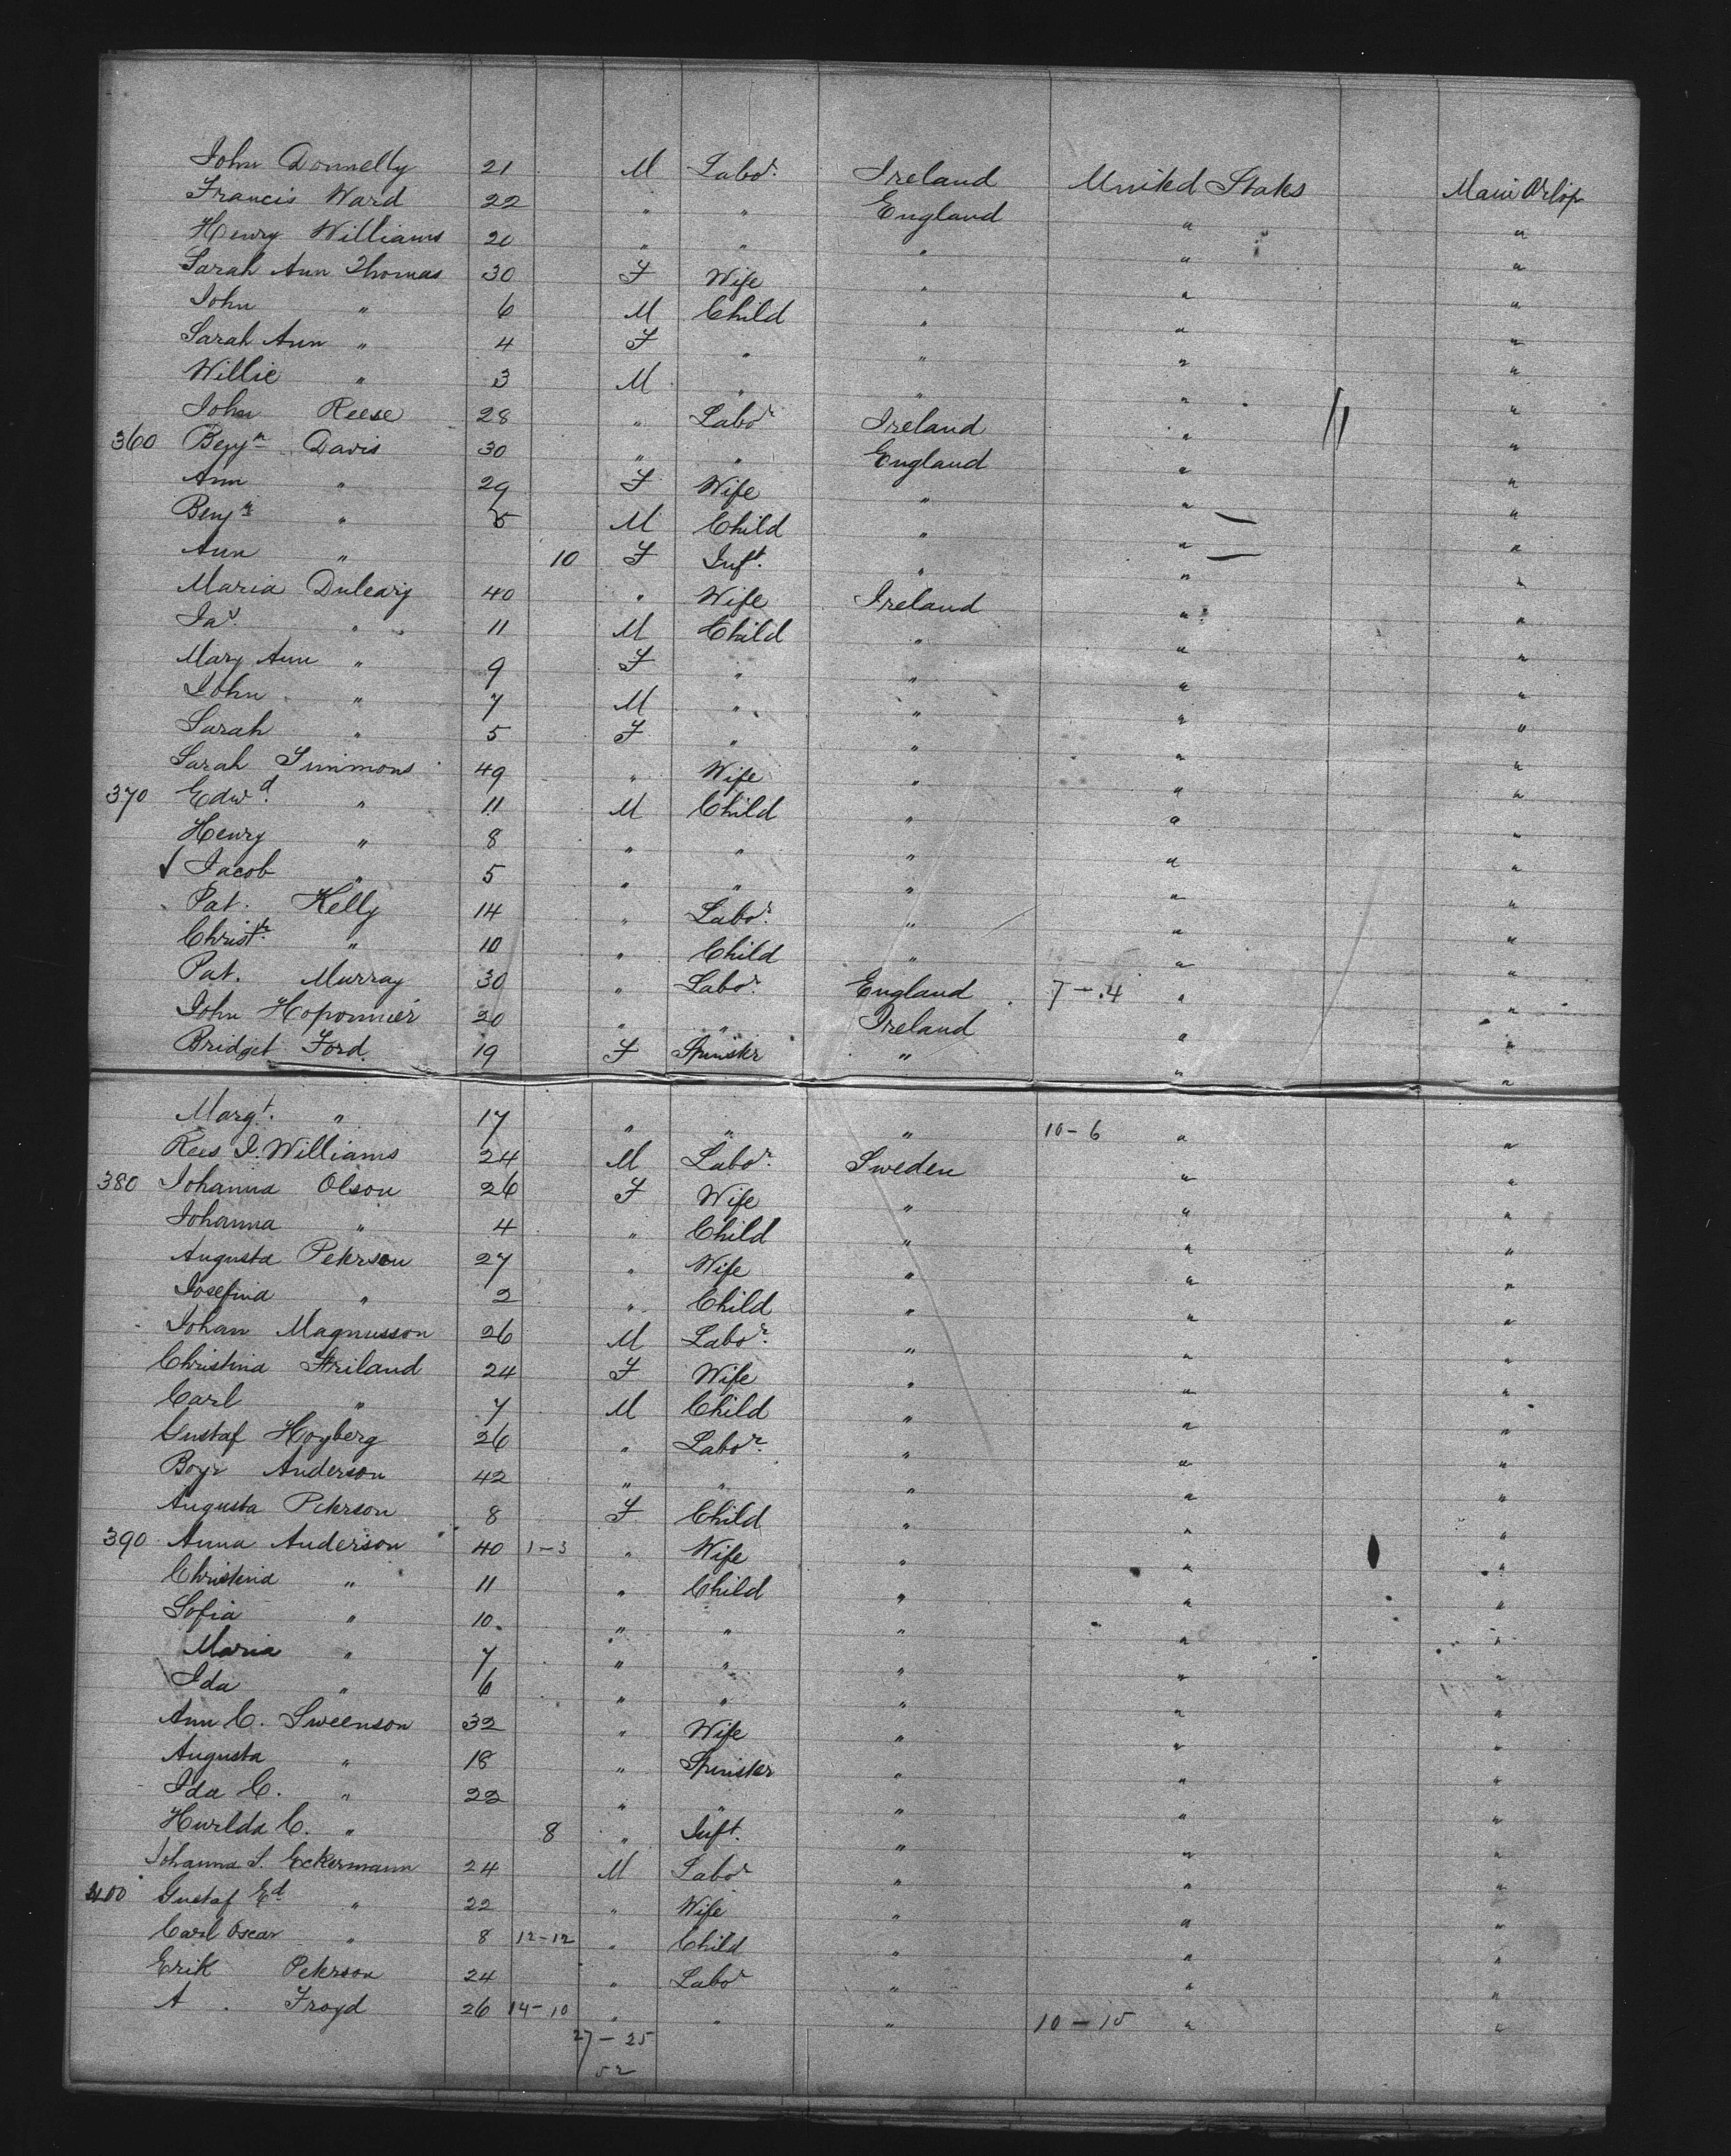 John Donnelly 21 M Labor. Ireland United States Main Orlop
Francis Ward 22 " " England " "
Henry Williams 20 " " " " "
Sarah Ann Thomas 30 F Wife " " "
John " 6 M Child " " "
Sarah Ann " 4 F " " " "
Willie " 3 M " " " "
John Reese 28 " Labor Ireland " "
360 Benjn Davis 30 " " England " "
Ann " 29 F Wife " " "
Benjn " 5 M Child " " "
Ann " 10 F Inft. " " "
Maria Duleary 40 " Wife Ireland " "
Jas. " 11 M Child " " "
Mary Ann " 9 F " " " "
John " 7 M " " " "
Sarah " 5 F " " " "
Sarah Simmons 49 " Wife " " "
370 Edwd. " 11 M Child " " "
Henry " 8 " " " " "
Jacob " 5 " " " " "
Pat. Kelly 14 " Labor. " " "
Christr. " 10 " Child " " "
Pat. Murray 30 " Labor. England 7-4 " "
John 20 " " Ireland " "
Bridget Ford 19 F Spinster " " "
Margt. " 17 " " " 10-6 " "
Rees J. Williams 24 M Labor. Sweden " "
380 Johanna Olson 26 F Wife " " "
Johanna " 4 " Child " " "
Augusta Peterson 27 " Wife " " "
Josefina " 2 " Child " " "
Johan Magnusson 26 M Labor. " " "
Christina 24 F Wife " " "
Carl " 7 M Child " " "
Gustaf Hogberg 26 " Labor. " " "
Anderson 42 " " " " "
Augusta Peterson 8 F Child " " "
390 Anna Anderson 40 1-3 " Wife " " "
Christina " 11 " Child " " "
Sofia " 10 " " " " "
Maria " 7 " " " " "
Ida " 6 " " " " "
Ann C. Sweenson 32 " Wife " " "
Augusta " 18 " Spinster " " "
Ida C. " 22 " " " " "
Hurlda C. " 8 " Inft. " " "
Johanna S. Eckermann 24 M Labor " " "
400 Gustaf Ed " 22 " Wife " " "
Carl Oscar " 8 12-12 " Child " " "
Erik Peterson 24 " Labor " " "
A. Froyd 26 14-10 " " " 10-15 " "
27-25
52